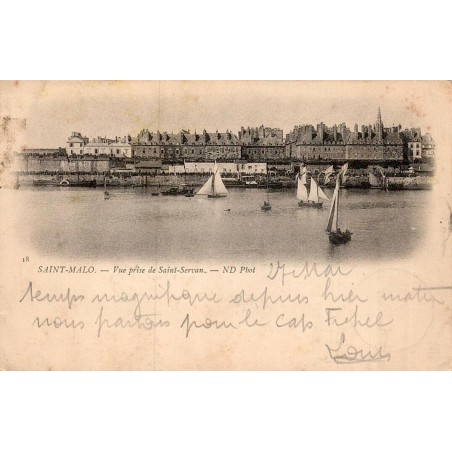 18
SAINT-MALO. — Vue prise de Saint-Servan. — ND Phot
27 Mai
temps magnifique depuis hier matin
nous partons pour le cap Frehel
Louis